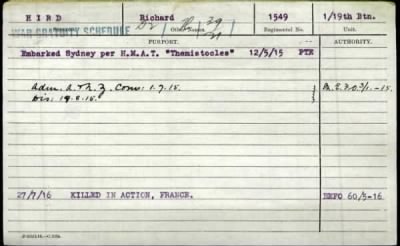 HIRD Richard 1549 1/19th Btn.
WAR GRATUITY SCHEDULE Other Names Regimental No. Unit.
PURPORT. AUTHORITY.
Embarked Sydney per H.M.A.T. "Themistocles" 12/5/15 PTE
Adm. A. & N. Z. Conv: 1.7.15.
Dis: 19.8.15.
27/7/16 KILLED IN ACTION, FRANCE. BEFO 60/5-16